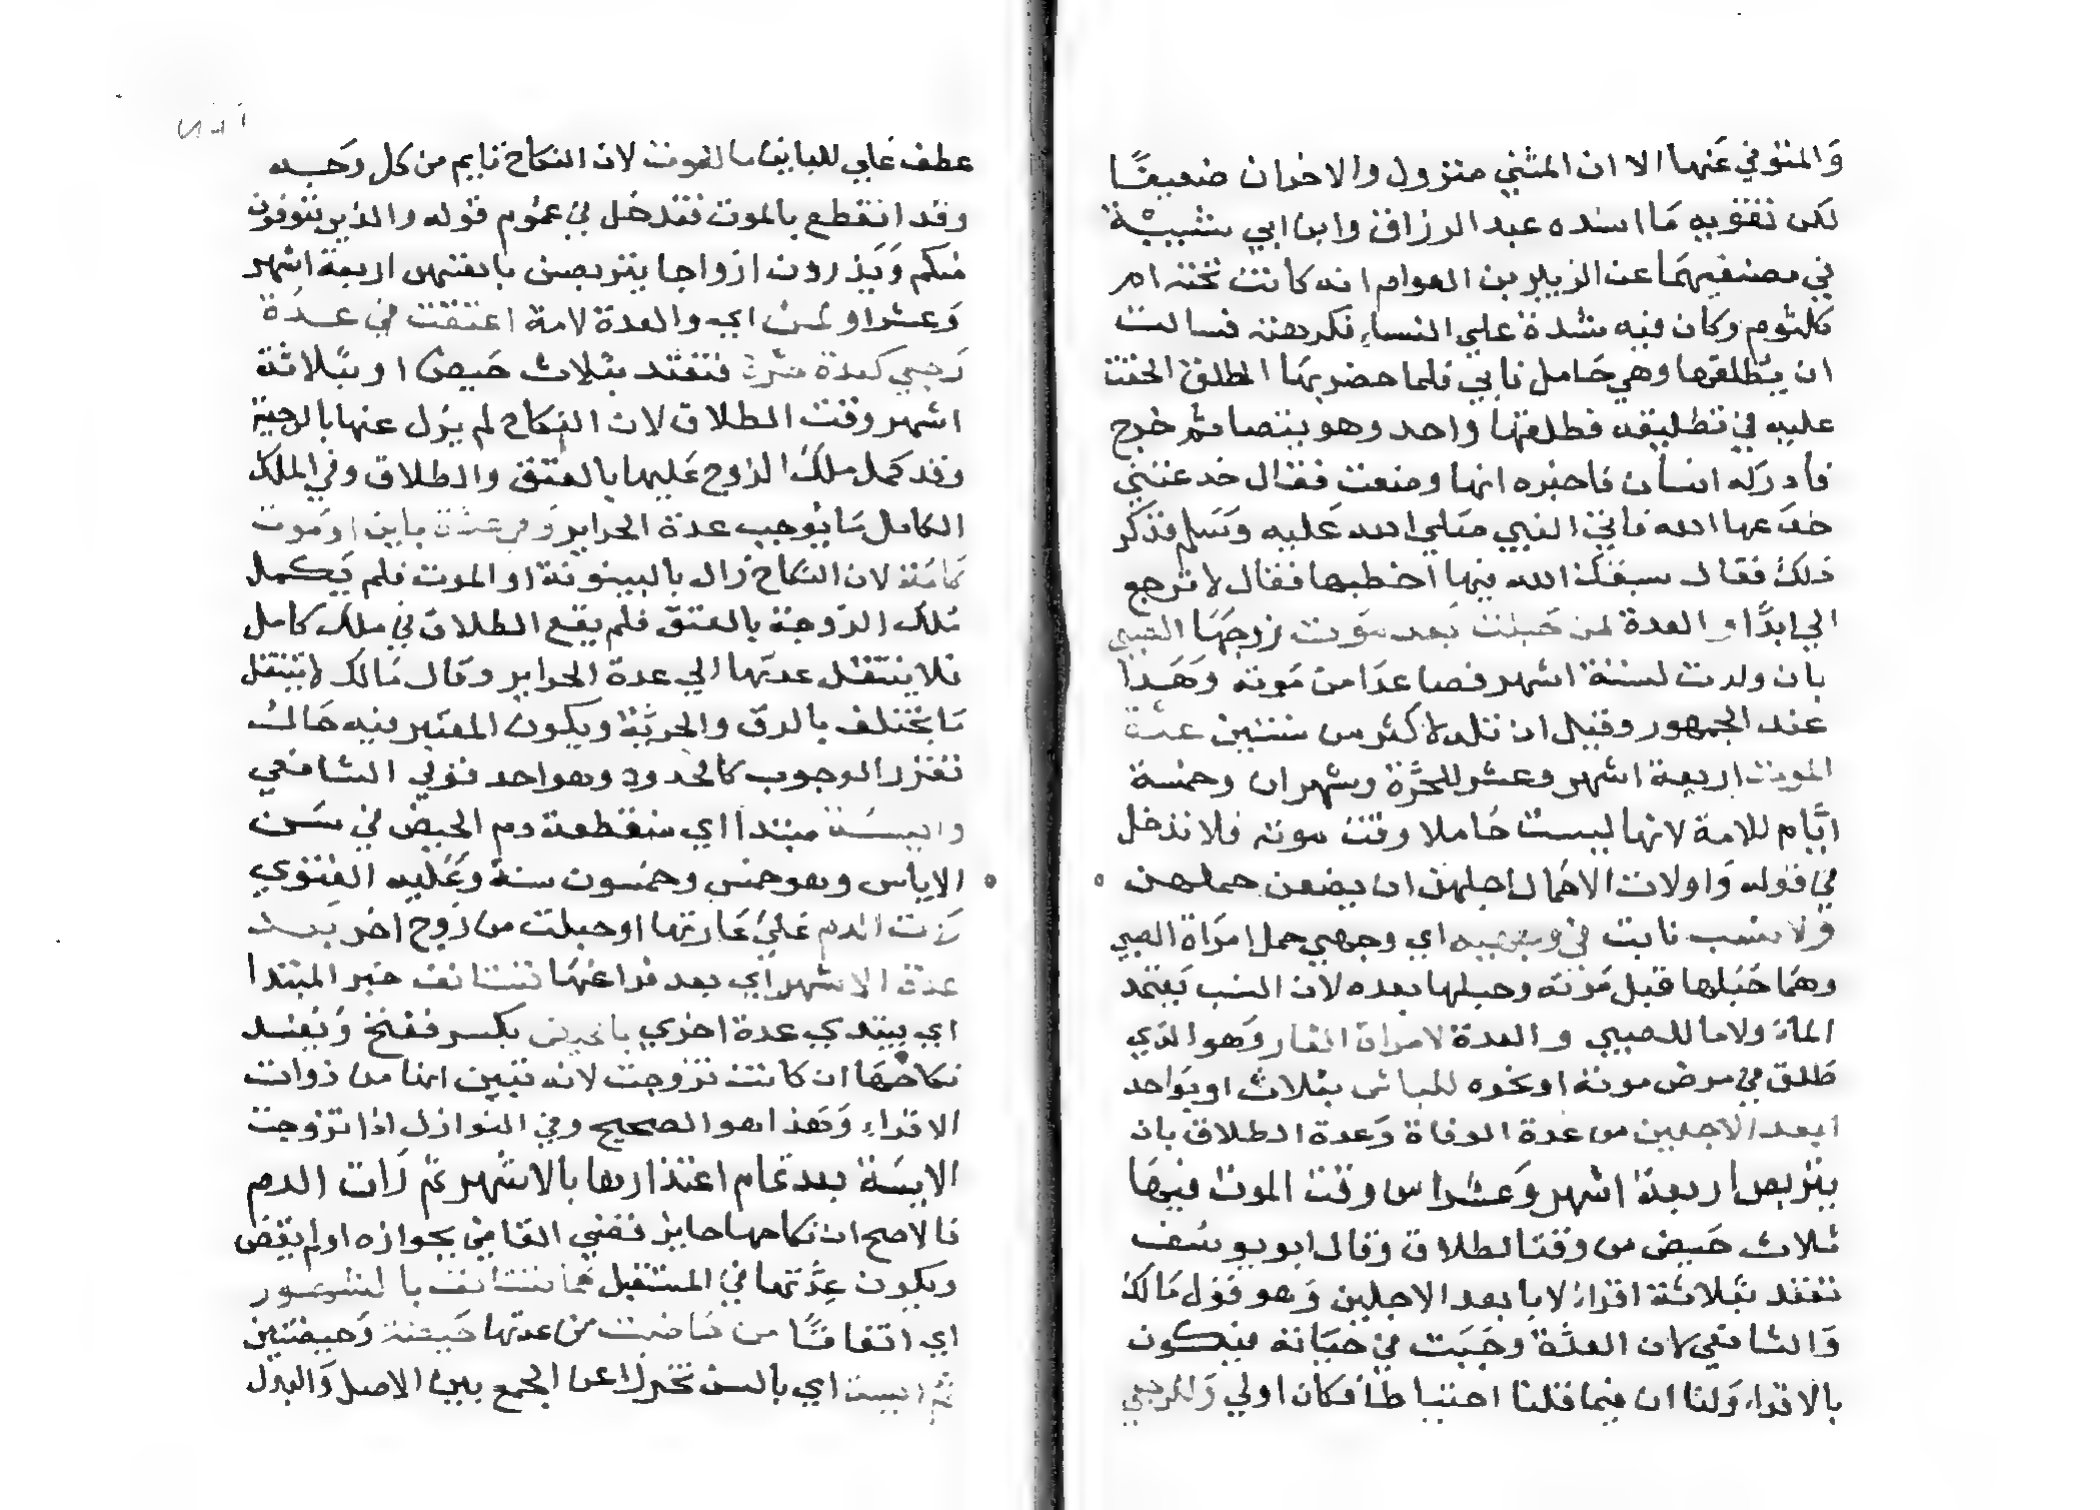 والمتوفي عنها الا ان المثني متزول والاخران ضعيفًا
لكن تقويه ما اسنده عبد الرزاق وابن ابي شيبة
في مصنفيهما عن الزبير بن العوام انه كانت تحته ام
كلثوم وكان فيه شدة علي النساء فكرهته فسالت
ان يطلقها وهي حامل فابي فلما ضربها الطلق الحت
عليه في تطليقه فطلقها واحد وهو يتوضا ثم خرج
فادركه انسان فاخبره انها وضعت فقال خدعتني
خدعها الله فاتي النبي صلي الله عليه وسلم فذكر
ذلك فقال سبقك الله فيها اخطبها فقال لا ترجع
الي ابدًا والعدة لمن حبلت بعد موت زوجها الصبي
بان ولدت لستة اشهر فصاعدا من موته وهذا
عند الجمهور وقيل ان تلد لاكثر من سنتين عدة
الموت اربعة اشهر وعشر للحرة وشهران وخمسة
ايام للامة لانها ليست حاملا وقت موته فلا تدخل
في قوله واولات الاحمال اجلهن ان يضعن حملهن
ولا نسب ثابت في وجهيه اي وجهي حمل امراة الصبي
وهما حبلها قبل موته وحبلها بعده لان النسب يعتمد
الماء ولا ما للصبي والعدة لامراة الفار وهو الذي
طلق في مرض موته او نحوه للبائن بثلاث او بواحد
ابعد الاجلين من عدة الوفاة وعدة الطلاق بان
يتربص اربعة اشهر وعشرا من وقت الموت فيها
ثلاث حيض من وقت الطلاق وقال ابو يوسف
تعتد بثلاثة اقراء لا بابعد الاجلين وهو قول مالك
والشافعي لان العدة وجبت في حياته فيكون
بالاقراء ولنا ان فيما قلنا احتياطا فكان اولي وللرجعي
عطف علي للباين ما لموت لان النكاح قايم من كل وجه
وقد انقطع بالموت فتدخل في عموم قوله والذين يتوفون
منكم ويذرون ازواجا يتربصن بانفسهن اربعة اشهر
وعشرا ولمن اي والعدة لامة اعتقت في عدة
رجعي كعدة حرة فتعتد بثلاث حيض او بثلاثة
اشهر وقت الطلاق لان النكاح لم يزل عنها بالرجعية
وقد كمل ملك الزوج عليها بالعتق والطلاق وفي الملك
الكامل ما يوجب عدة الحراير وفي عدة باين او موت
كامة لان النكاح زال بالبينونة او الموت فلم يكمل
ملك الزوجة بالعتق فلم يقع الطلاق في ملك كامل
فلا ينتقل عدتها الي عدة الحراير وقال مالك لا تنتقل
ما يختلف بالرق والحرية ويكون المعتبر فيه حالت
تقرر الوجوب كالحدود وهو احد قولي الشافعي
وايسة مبتدا اي منقطعة دم الحيض في سن
الاياس وهو خمس وخمسون سنة وعليه الفتوي
رات الدم علي عادتها او حبلت من زوج اخر بعد
عدة الاشهر اي بعد فراغها تستانف خبر المبتدا
اي يبتدي عدة اخري بالحيض بكسر ففتح ويفسد
نكاحها ان كانت تزوجت لانه تبين انها من ذوات
الاقراء وهذا هو الصحيح وفي النوازل اذا تزوجت
الايسة بعد تمام اعتدادها بالاشهر ثم رات الدم
فالاصح ان نكاحها جايز قضي القاضي بجوازه او لم يقض
ويكون عدتها في المستقبل كما تستانف بالشهور
اي اتفاقًا من حاضت من عدتها حيضة وحيضتين
ثم ايست اي بالسن تحرزا عن الجمع بين الاصل والبدل